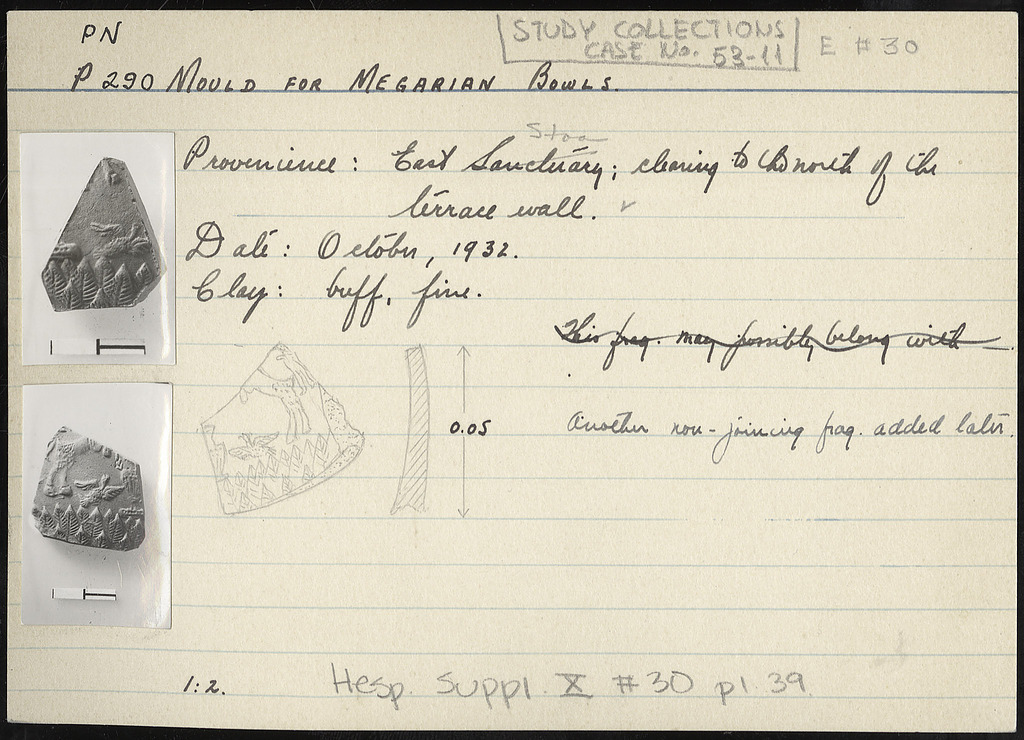 PN
STUDY COLLECTIONS
CASE No. 53-11
E # 30
P 290 MOULD FOR MEGARIAN BOWLS.
Stoa
Provenience: East Sanctuary; clearing to the north of the
terrace wall. ✓
Date: October, 1932.
Clay: buff, fine.
This frag. may possibly belong with
0.05
Another non-joining frag. added later.
1:2.
Hesp. Suppl. X #30 pl. 39.